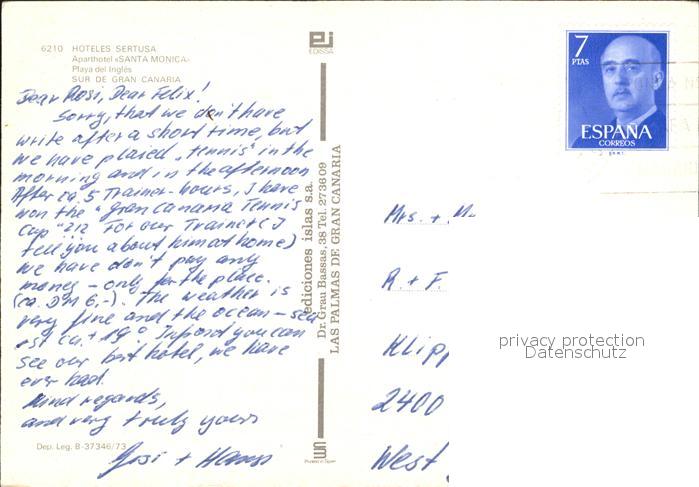 6210 HOTELES SERTUSA
Aparthotel «SANTA MONICA»
Playa del Inglés
SUR DE GRAN CANARIA
Dear Rosi, Dear Felix!
Sorry, that we don't have
write after a short time, but
we have plaied „tennis" in the
morning and in the afternoon
After ca. 5 Trainer-hours, I have
won the "Gran Canaria Tennis
Cup" !?! For our Trainer (I
tell you about him at home)
we have don't pay any
money - only for the place.
(ca. DM 6,-). The weather is
very fine and the ocean - sea
est ca. + 19°. Infrond you can
see our best hotel, we have
ever had.
Kind regards,
and very truly yours
Josi + Hanns
Dep. Leg. B-37346/73
EDISSA
ediciones islas s.a.
Dr. Grau Bassas, 38 Tel. 273609
LAS PALMAS DE GRAN CANARIA
Printed in Spain
7
PTAS
ESPAÑA
CORREOS
Mrs. + M
R. + F.
Klipp
2400
West
privacy protection
Datenschutz